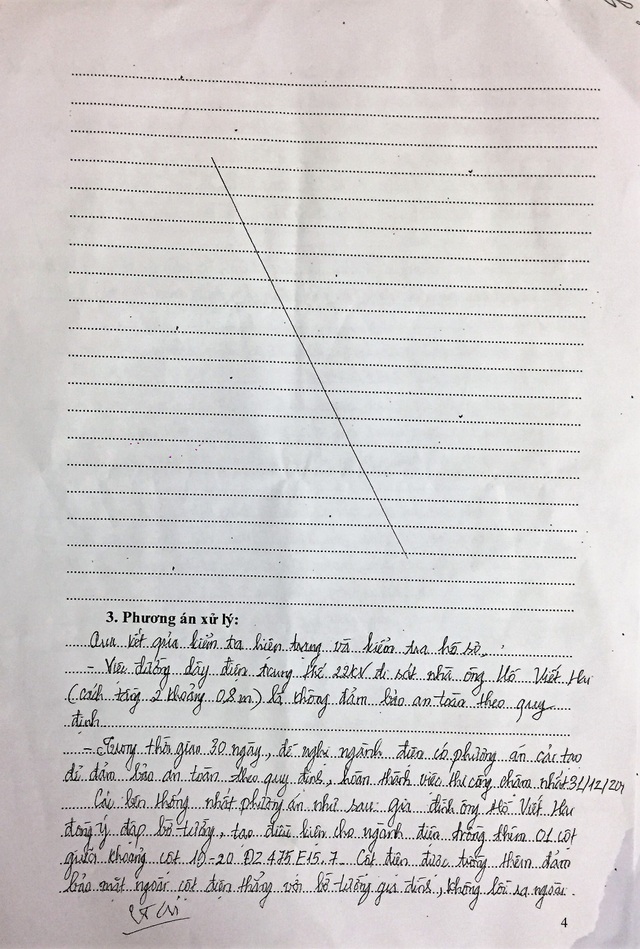 3. Phương án xử lý:
Qua kết quả kiểm tra hiện trạng và kiểm tra hồ sơ...:
- Việc đường dây điện trung thế 22KV đi sát nhà ông Hồ Viết Hải
(cách tầng 2 khoảng 0,8m) là không đảm bảo an toàn theo quy
định
- Trong thời gian 30 ngày, đề nghị ngành điện có phương án cải tạo
để đảm bảo an toàn theo quy định, hoàn thành việc thi công chậm nhất 31/12/201
Các bên thống nhất phương án như sau: gia đình ông Hồ Viết Hải
đồng ý đập bờ tường, tạo điều kiện cho ngành điện trồng thêm 01 cột
giữa khoảng cột 19-20 ĐZ 475 E15.7. Cột điện được trồng thêm đảm
bảo mặt ngoài cột điện thẳng với bờ tường gia đình, không lồi ra ngoài.
4